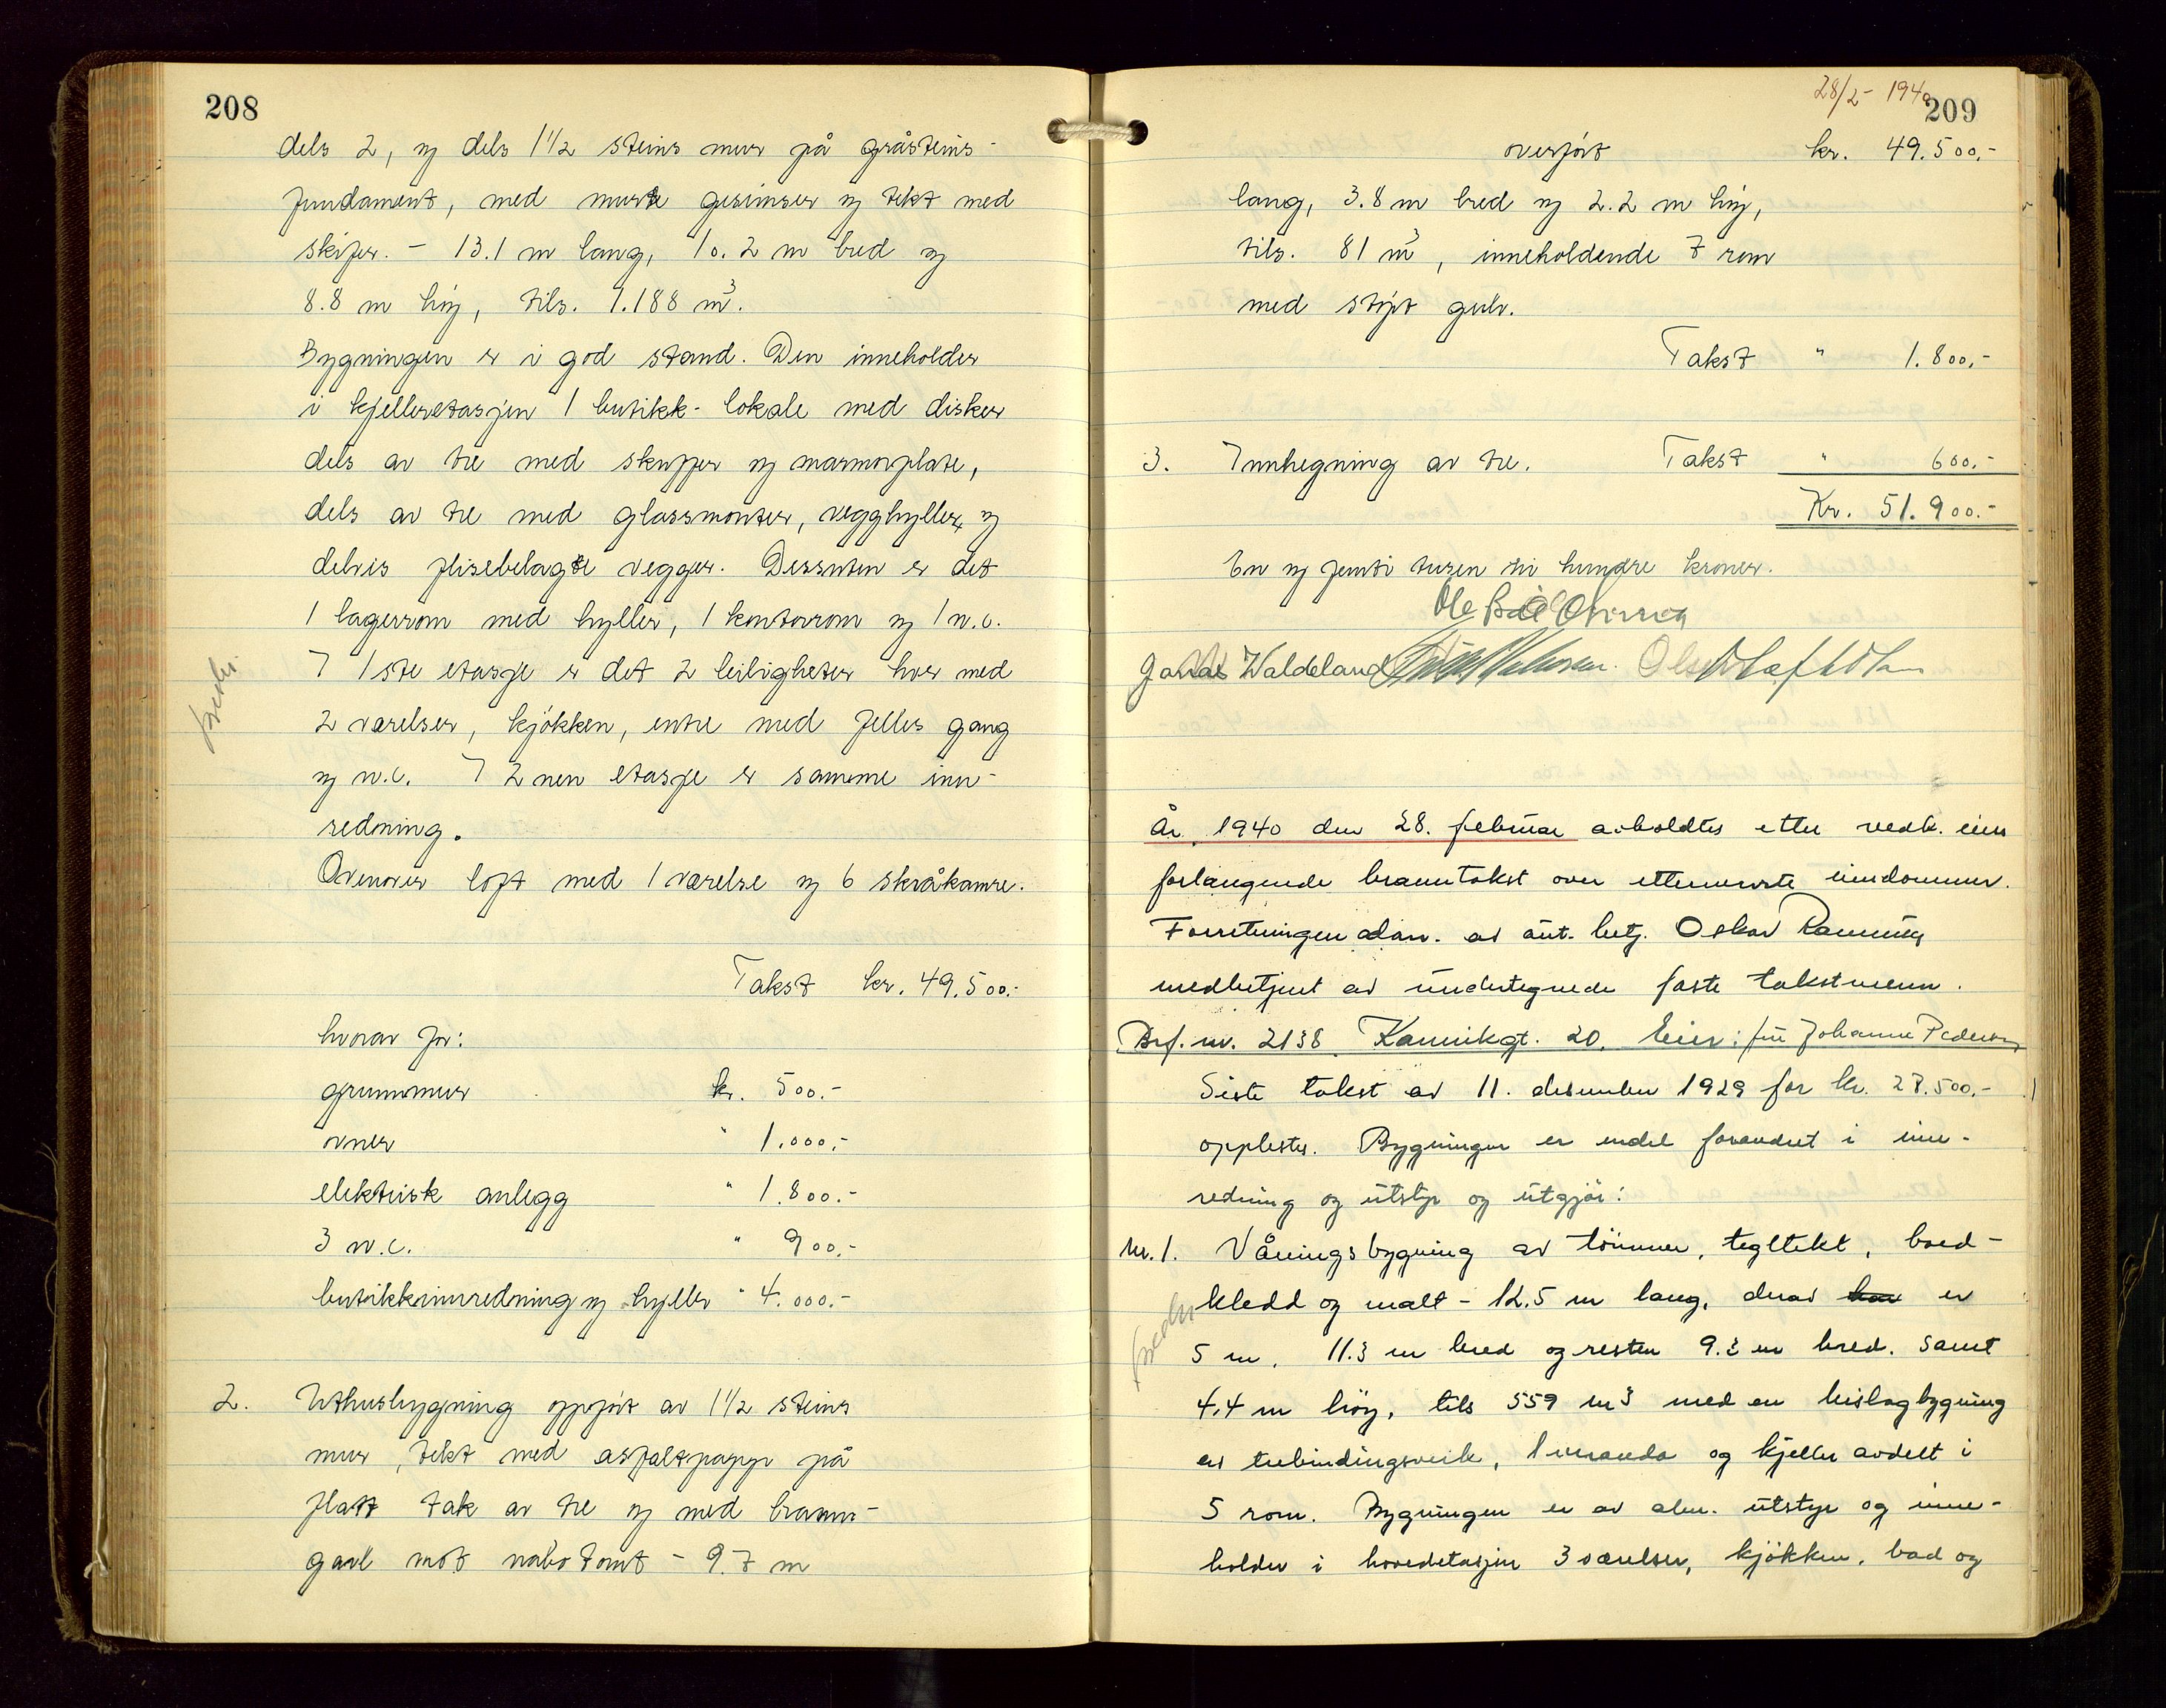 208
dels 2, og dels 1 1/2 steins mur på gråsteins-
fundament, med murte gesimser og tekt med
skifer. - 13.1 m lang, 10.2 m bred og
8.8 m høy, tils. 1.188 m³.
Bygningen er i god stand. Den inneholder
i kjelleretasjen 1 butikk-lokale med disker
dels av tre med skuffer og marmorplate,
dels av tre med glassmonter, vegghyller, og
delvis flisebelagte vegger. Dessuten er det
1 lagerrom med hyller, 1 kontorrom og 1 w.c.
I 1ste etasje er det 2 leiligheter hver med
2 værelser, kjøkken, entre med felles gang
og w.c. I 2nen etasje er samme inn-
redning.
Ovenover loft med 1 værelse og 6 skråkamre.
Takst kr. 49.500.-
hvorav for:
grunnmur kr. 500.-
ovner " 1.000.-
elektrisk anlegg " 1.800.-
3 w.c. " 900.-
butikkinnredning og hyller " 4.000.-
2. Uthusbygning oppført av 1 1/2 steins
mur, tekt med asfaltpapp på
flatt tak av tre og med brann-
gavl mot nabotomt - 9.7 m
28/2- 1940
209
overført kr. 49.500.-
lang, 3.8 m bred og 2.2 m høy,
tils. 81 m³, inneholdende 7 rom
med støpt gulv.
Takst " 1.800.-
3. Innhegning av tre. Takst " 600.-
Kr. 51.900.-
En og femti tusen ni hundre kroner.
Jonas Waldeland
År 1940 den 28. februar avholdtes etter vedk. eiers
forlangende branntakst over etternevnte eiendommer.
Forretningen adm. av aut. betj. Oskar
medbetjent av undertegnede faste takstmenn.
Brf. nr. 2138 Kannikgt. 20. Eier: fru Johanne Pedersen
Siste takst av 11. desember 1929 for kr. 27.500.-
opplestes. Bygningen er endel forandret i inn-
redning og utstyr og utgjør:
Nr. 1. Våningsbygning av tømmer, tegltekt, bord-
kledd og malt - 12.5 m lang, derav har er
5 m. 11.3 m bred og resten 9.3 m bred. samt
4.4 m høy, tils 559 m³ med en bislagbygning
av trebindingsverk, 1 veranda og kjeller avdelt i
5 rom. Bygningen er av alm. utstyr og inne-
holder i hovedetasjen 3 værelser, kjøkken, bad og